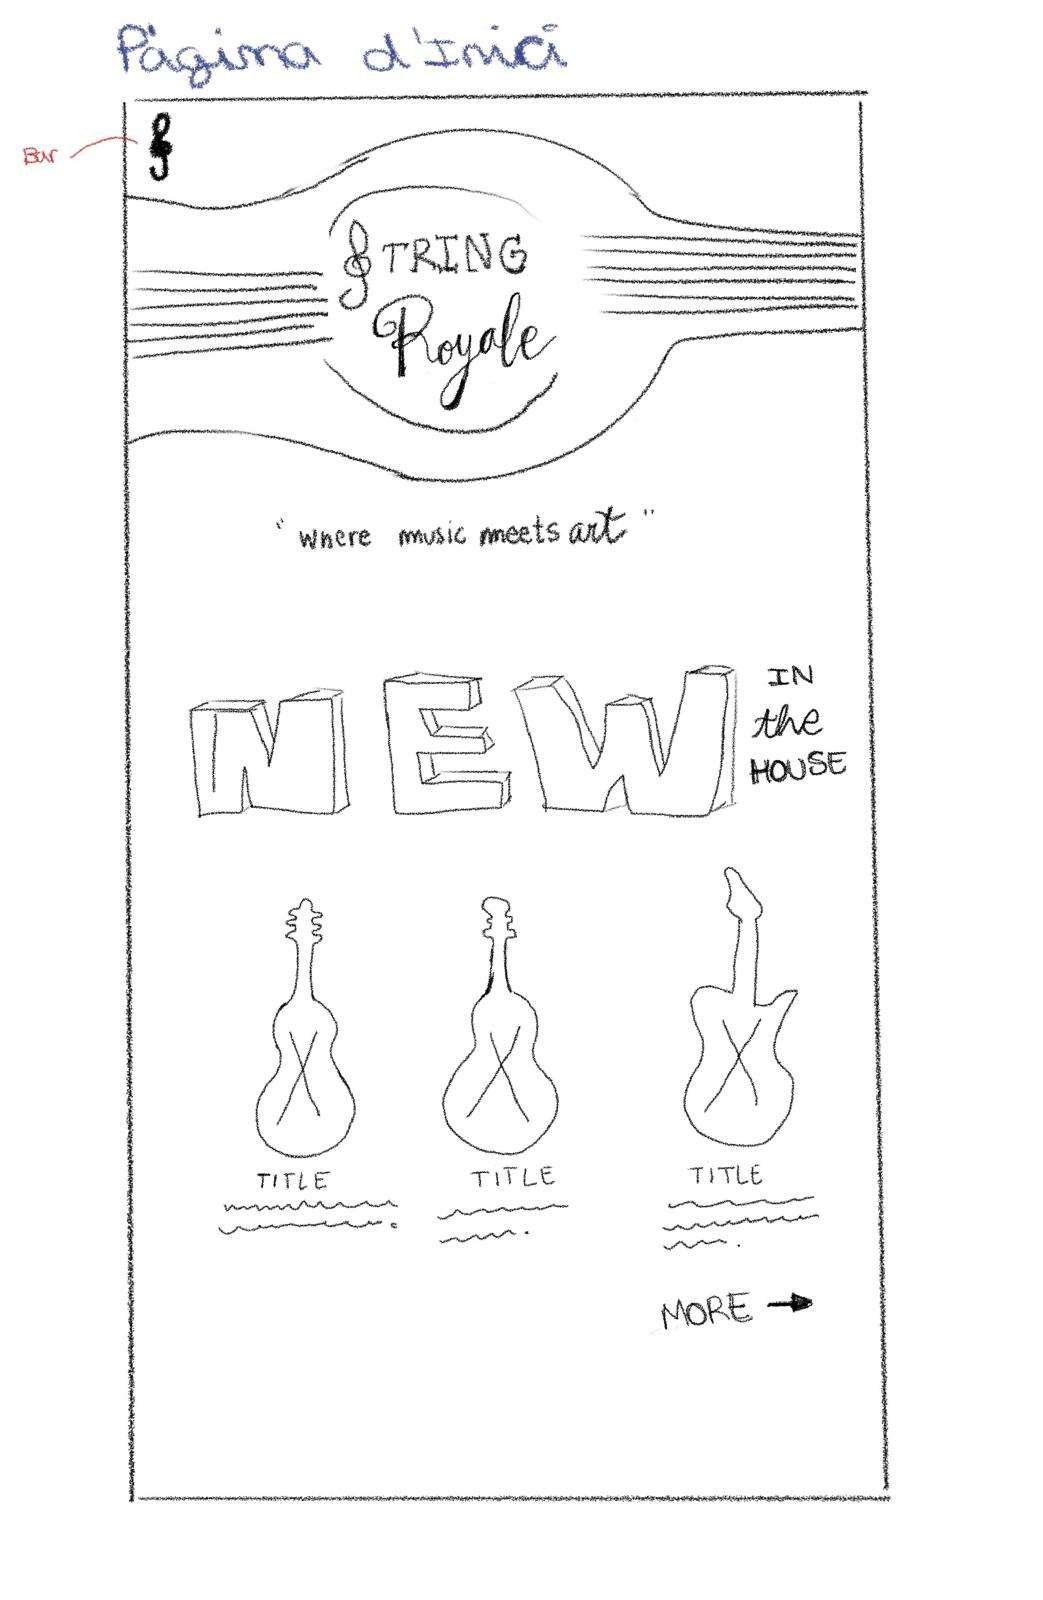 Pàgina d'Inici
Bar
STRING
Royale
"where music meets art"
NEW
IN
the
HOUSE
TITLE
TITLE
TITLE
MORE →